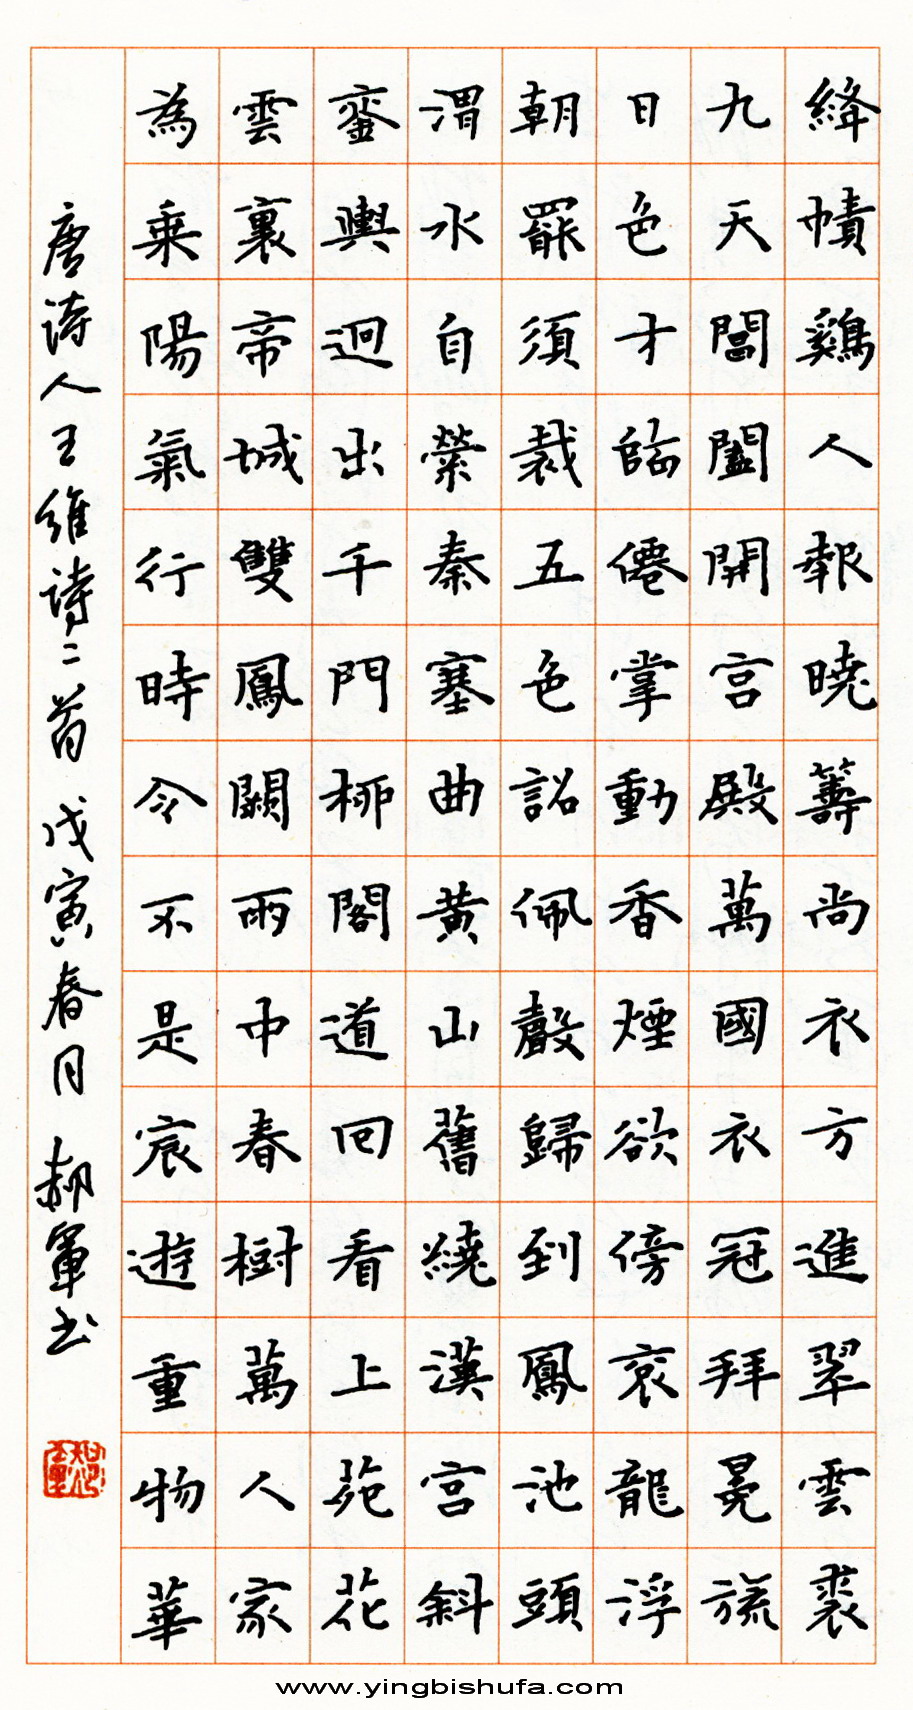 絳幘鷄人報曉籌尚衣方進翠雲裘
九天閶闔開宮殿萬國衣冠拜冕旒
日色才臨僊掌動香煙欲傍袞龍浮
朝罷須裁五色詔佩聲歸到鳳池頭
渭水自縈秦塞曲黄山舊繞漢宮斜
鑾輿迥出千門柳閣道回看上苑花
雲裏帝城雙鳳闕雨中春樹萬人家
為乗陽氣行時令不是宸遊重物華
唐诗人王維詩二首 戊寅春月 郝軍书
www.yingbishufa.com